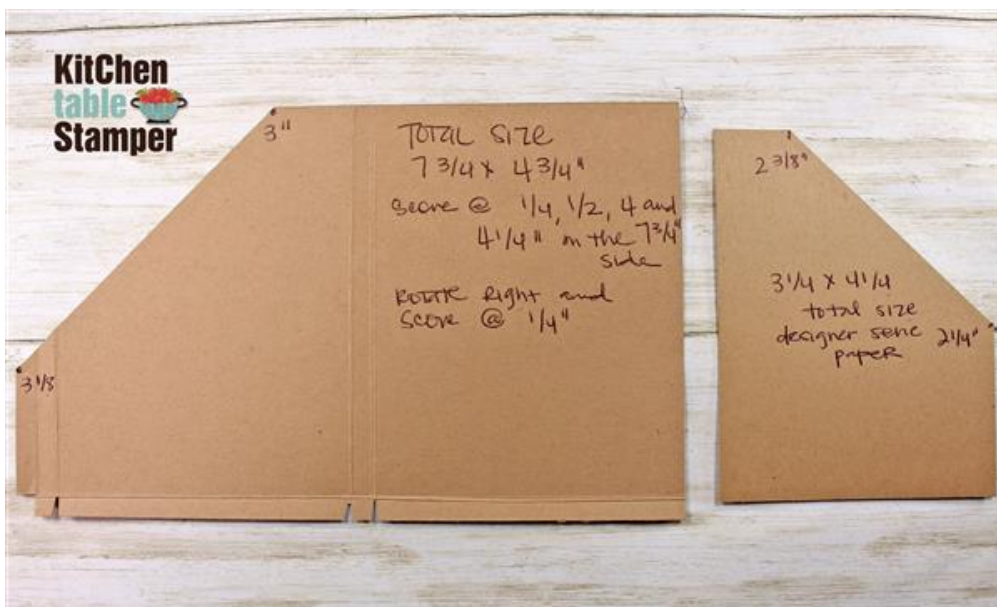 KitChen
table
Stamper
3"
TOTAL SIZE
7 3/4 x 4 3/4"
Score @ 1/4, 1/2, 4 and
4 1/4" on the 7 3/4"
side
ROTATE Right and
SCORE @ 1/4"
3 1/8
2 3/8"
3 1/4 x 4 1/4
total size
designer serie
paper
2 1/4"